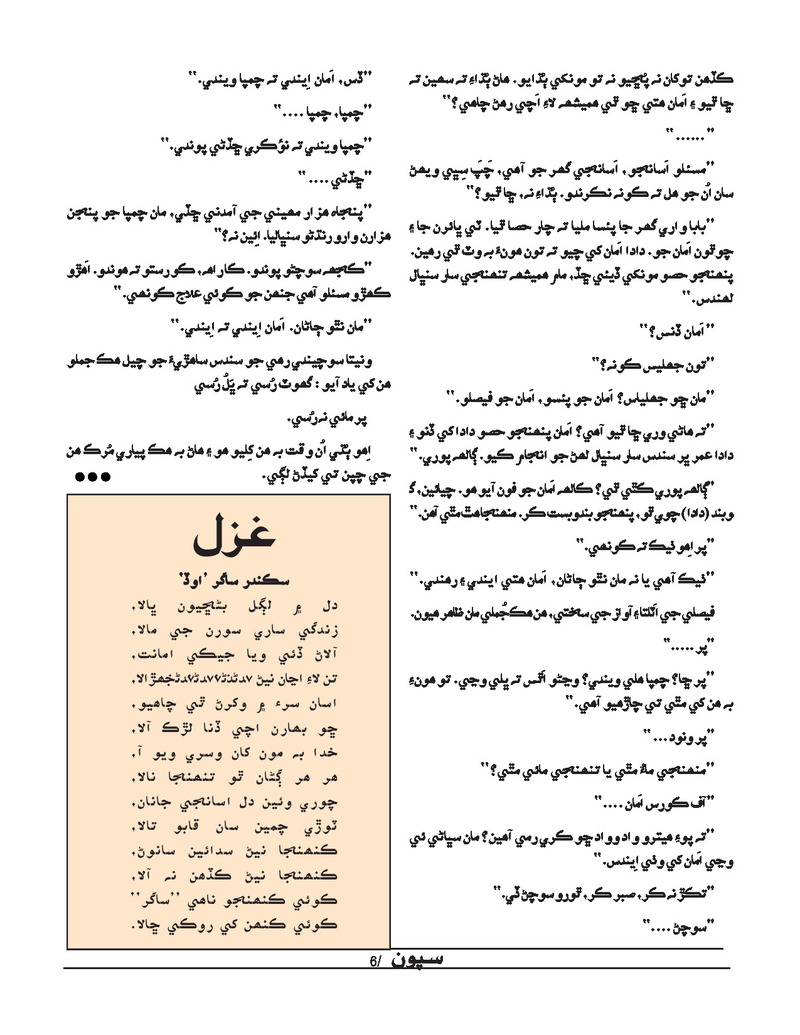 ڪڏهن توکان نه پُڇيو نه تو مونکي ٻڌايو. هاڻ ٻڌاءِ ته سهين ته
ڇا ٿيو ۽ اَمان هتي ڇو ٿي هميشهہ لاءِ اَچي رهڻ چاهي؟“
”......“
”مسئلو اَسانجو، اَسانجي گهر جو آهي، چَپَ سِيي ويهڻ
سان اُن جو هل ته ڪونه نڪرندو. ٻڌاءِ نه، ڇا ٿيو؟“
”بابا واري گهر جا پئسا مليا ته چار حصا ٿيا. ٽي ڀائرن جا ۽
چوٿون اَمان جو. دادا اَمان کي چيو ته تون هونءَ به وٽ ٿي رهين.
پنهنجو حصو مونکي ڏيئي ڇڏ، مان هميشهہ تنهنجي سار سنڀال
لهندس.“
”اَمان ڏنس؟“
”تون جهليس ڪونه؟“
”مان ڇو جهلياس؟ اَمان جو پئسو، اَمان جو فيصلو.“
”ته هاڻي وري ڇا ٿيو آهي؟ اَمان پنهنجو حصو دادا کي ڏنو ۽
دادا عمر ڀر سندس سار سنڀال لهڻ جو انجام ڪيو. ڳالهہ پوري.“
”ڳالهہ پوري ڪٿي ٿي؟ ڪالهہ اَمان جو فون آيو هو. چيائين،
وبند (دادا) چوي ٿو، پنهنجو بندوبست ڪر. منهنجا هٿ مٿي آهن.“
”پر اِهو ٺيڪ ته ڪونهي.“
”ٺيڪ آهي يا نه مان نٿو ڄاڻان، اَمان هتي ايندي ۽ رهندي.“
فيصلي جي اٽلتا ۽ آواز جي سختي، هن هڪ جُملي مان ظاهر هيون.
”پر.....“
”پر ڇا؟ چمپا هلي ويندي؟ وڃڻو اَٿس ته ڀلي وڃي. تو هونءِ
به هن کي مٿي تي چاڙهيو آهي.“
”پر ونود...“
”منهنجي ماءُ مٿي يا تنهنجي مائي مٿي؟“
”آف ڪورس اَمان ....“
”ته پوءِ هيترو وادوواد ڇو ڪري رهي آهين؟ مان سڀاڻي ئي
وڃي اَمان کي وٺي اِيندس.“
”تڪڙ نه ڪر، صبر ڪر، ٿورو سوچڻ ڏي.“
”سوچڻ ....“
”ڏس، اَمان اِيندي ته چمپا ويندي.“
”چمپا، چمپا ....“
”چمپا ويندي ته نوُڪري ڇڏڻي پوندي.“
”ڇڏڻي ....“
”پنجاهہ هزار مهيني جي آمدني ڇٽي، مان چمپا جو پنجن
هزارن وارو رنڌڻو سنڀاليا. اِئين نه؟“
”ڪجهہ سوچڻو پوندو. ڪا راهہ، ڪو رستو ته هوندو. اَهڙو
ڪهڙو مسئلو آهي جنهن جو ڪوئي علاج ڪونهي.“
”مان نٿو ڄاڻان. اَمان اِيندي ته اِيندي.“
ونيتا سوچيندي رهي جو سندس ساهڙيءَ جو چيل هڪ جملو
هن کي ياد آيو : گهوٽ رُسي ته ڀَلُ رُسي
پر مائي نه رُسي.
اِهو ٻُڌي اُن وقت به هن کِليو هو ۽ هاڻ به هڪ پياري مُرڪ هن
جي چپن تي کيڏڻ لڳي. ●●●
غزل
سڪندر ساگر ’اوڏ‘
دل ۾ لڳل بڻڇيون ڀالا،
زندگي ساري سورن جي مالا،
آلاڻ ڏئي ويا جيڪي امانت،
اسان سرءِ ۾ وکرڻ ٿي چاهيو،
ڇو بهارن اچي ڏنا لڙڪ آلا،
خدا به مون کان وسري ويو آ،
هر هر ڳڻان ٿو تنهنجا نالا،
چوري وئين دل اسانجي جانان،
توڙي چمين سان قابو تالا،
ڪنهنجا نيڻ سدائين سانوڻ،
ڪنهنجا نيڻ ڪڏهن نه آلا،
ڪوئي ڪنهنجو ناهي ”ساگر“
ڪوئي ڪنهن کي روڪي ڇالا.
سپون /6